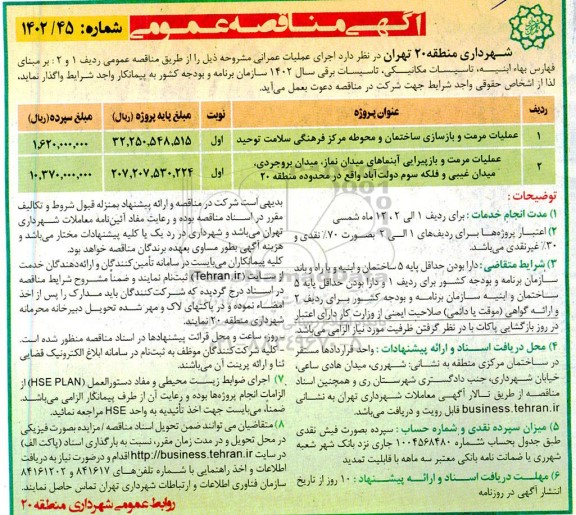 آگهی مناقصه عمومی
شماره: ۱۴۰۲/۴۵
شهرداری منطقه ۲۰ تهران در نظر دارد اجرای عملیات عمرانی مشروحه ذیل را از طریق مناقصه عمومی ردیف ۱ و ۲: بر مبنای
فهارس بهاء ابنیه، تاسیسات مکانیکی، تاسیسات برقی سال ۱۴۰۲ سازمان برنامه و بودجه کشور به پیمانکار واجد شرایط واگذار نماید،
لذا از اشخاص حقوقی واجد شرایط جهت شرکت در مناقصه دعوت بعمل می‌آید.
ردیف عنوان پروژه نوبت مبلغ پایه پروژه (ریال) مبلغ سپرده (ریال)
۱ عملیات مرمت و بازسازی ساختمان و محوطه مرکز فرهنگی سلامت توحید اول ۳۲,۲۵۰,۵۴۸,۵۱۵ ۱,۶۲۰,۰۰۰,۰۰۰
۲ عملیات مرمت و بازپیرایی آبنماهای میدان نماز، میدان بروجردی،
میدان غیبی و فلکه سوم دولت‌آباد واقع در محدوده منطقه ۲۰ اول ۲۰۷,۲۰۷,۵۳۰,۲۲۴ ۱۰,۳۷۰,۰۰۰,۰۰۰
توضیحات:
۱) مدت انجام خدمات: برای ردیف ۱ الی ۲، ۱۲ ماه شمسی
۲) اعتبار پروژه‌ها برای ردیف‌های ۱ الی ۲ بصورت ۷۰٪ نقدی و
۳۰٪ غیرنقدی می‌باشد.
۳) شرایط متقاضی: دارا بودن حداقل پایه ۵ ساختمان و ابنیه و یا راه و باند
سازمان برنامه و بودجه کشور برای ردیف ۱ و دارا بودن حداقل پایه ۵
ساختمان و ابنیه سازمان برنامه و بودجه کشور برای ردیف ۲
و ارائه گواهی (موقت یا دائمی) صلاحیت ایمنی از وزارت کار دارای اعتبار
در روز بازگشایی پاکات با در نظر گرفتن ظرفیت مورد نیاز الزامی می‌باشد
۴) محل دریافت اسناد و ارائه پیشنهادات: واحد قراردادها مستقر
در ساختمان مرکزی منطقه به نشانی: شهرری، میدان هادی ساعی،
خیابان شهرداری، جنب دادگستری شهرستان ری و همچنین اسناد
مناقصه از طریق تالار آگهی معاملات شهرداری تهران به نشانی
business.tehran.ir قابل رویت و دریافت می‌باشد.
۵) میزان سپرده نقدی و شماره حساب: سپرده بصورت فیش نقدی
طبق جدول بحساب شماره ۱۰۰۴۵۶۸۴۸۰ جاری نزد بانک شهر شعبه
شهرری یا ضمانت نامه بانکی معتبر سه ماهه با قابلیت تمدید
۶) مهلت دریافت اسناد و ارائه پیشنهاد: ۱۰ روز از تاریخ
انتشار آگهی در روزنامه
بدیهی است شرکت در مناقصه و ارائه پیشنهاد بمنزله قبول شروط و تکالیف
مقرر در اسناد مناقصه بوده و رعایت مفاد آئین‌نامه معاملات شهرداری
تهران می‌باشد و شهرداری در رد یک یا کلیه پیشنهادات مختار می‌باشد و
هزینه آگهی بطور مساوی بعهده برندگان مناقصه خواهد بود.
کلیه پیمانکاران می‌بایست در سامانه تأمین‌کنندگان و ارائه‌دهندگان خدمت
از سایت (Tehran.ir) ثبت‌نام نمایند و ضمناً مشروح شرایط مناقصه
در اسناد درج گردیده که شرکت‌کنندگان باید مدارک را پس از اخذ
امضاء نموده و در پاکتهای لاک و مهر شده تحویل دبیرخانه محرمانه
شهرداری منطقه ۲۰ نمایند.
-روز، ساعت و محل قرائت پیشنهادها در اسناد مناقصه منظور شده است.
-کلیه شرکت‌کنندگان موظف به ثبت‌نام در سامانه ابلاغ الکترونیک قضایی
ثنا و ارائه پرینت آن می‌باشند.
۷) اجرای ضوابط زیست محیطی و مفاد دستورالعمل (HSE PLAN) از
الزامات انجام پروژه‌ها بوده و رعایت آن از طرف پیمانکار الزامی می‌باشد.
ضمناً، می‌بایست جهت اخذ تأئیدیه به واحد HSE مراجعه نمائید.
۸) متقاضیان می توانند ضمن تحویل اسناد مناقصه / مزایده بصورت فیزیکی
در محل تحویل و در مدت زمان مقرر، نسبت به بارگذاری اسناد (پاکت الف)
در سایت http://business.tehran.ir اقدام و درصورت نیاز به دریافت
اطلاعات و اخذ راهنمایی با شماره تلفن‌های ۸۴۱۶۱۷ و ۸۴۱۶۱۲۰۲
سازمان فناوری اطلاعات و ارتباطات شهرداری تهران تماس حاصل نمایند.
روابط عمومی شهرداری منطقه ۲۰